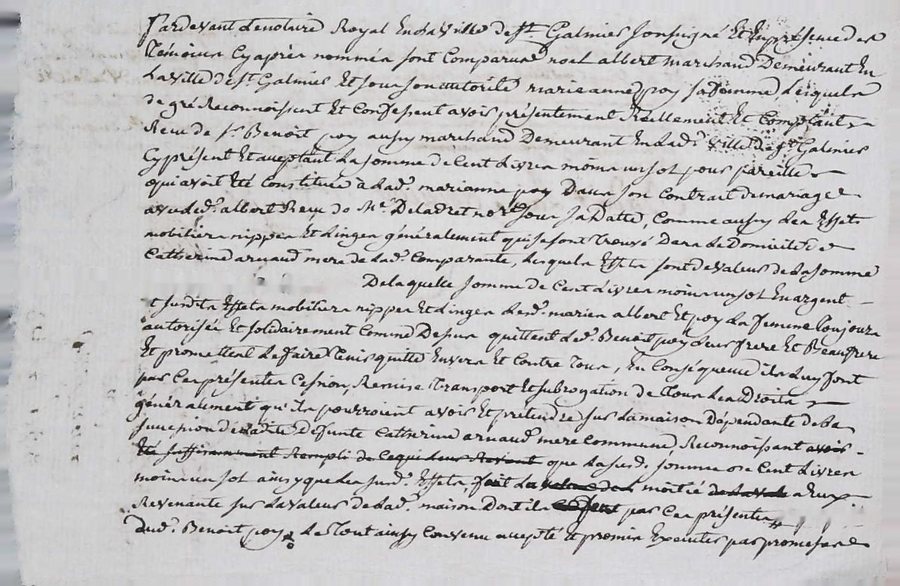 Pardevant Le notaire Royal En La Ville de st. Galmier soussigné Et En presence des
Témoins Cy aprés nommés sont Comparus noel albert marchand Demeurant En
La Ville de st. Galmier Et sous son autorité marieanne poy sa femme, Lesquels
de gré Reconnoissent Et Confessent avoir présentement Réellement Et Comptant
Reçu de sr. Benoit poy aussy marchand Demeurant En Lad. ville de st. Galmier
Cy présent Et acceptant La somme de Cent Livres moins un sol pour pareille
qui avoit été Constituée a Lad. marianne poy Dans son Contrat de mariage
avec Led. albert Reçu de Me. Deladret nore. sous sa Datte, Comme aussy Les Effets
mobiliers nippes Et Linges généralement qui se sont Trouvé Dans Le Domicile de
Catherine arnaud mere de Lad. Comparante, Lesquels Effets sont de valeur de La somme
De Laquelle somme de Cent Livres moins un sol En argent
Et susdits Effets mobiliers nippes Et Linges Led. mariés albert Et poy La femme Toujours
autorisée Et solidairement Comme Dessus quittent Led. Benoit poy Leur frere Et Beaufrere
Et promettent Le faire Tenir quitte Envers Et Contre Tous, En Conséquence ils Luy font
par Ces présentes Cession, Remise, Transport Et subrogation de Tous Les Droits
généralement qu'ils pourroient avoir Et prétendre sur La maison Dépendante de La
succession de Ladite Défunte Catherine arnaud mere Commune, Reconnoissant avoir
Eté suffisamment Rempli de Ce qui Leur Revient que La susd. somme de Cent Livres
moins un sol ainsy que Les susd. Effets font La moitié a Eux
Revenante sur La valeur de Lad. maison Dont ils par Ces présentes
aud. Benoit poy Le Tout ainsy Convenu accepté Et promis Executer par promesse